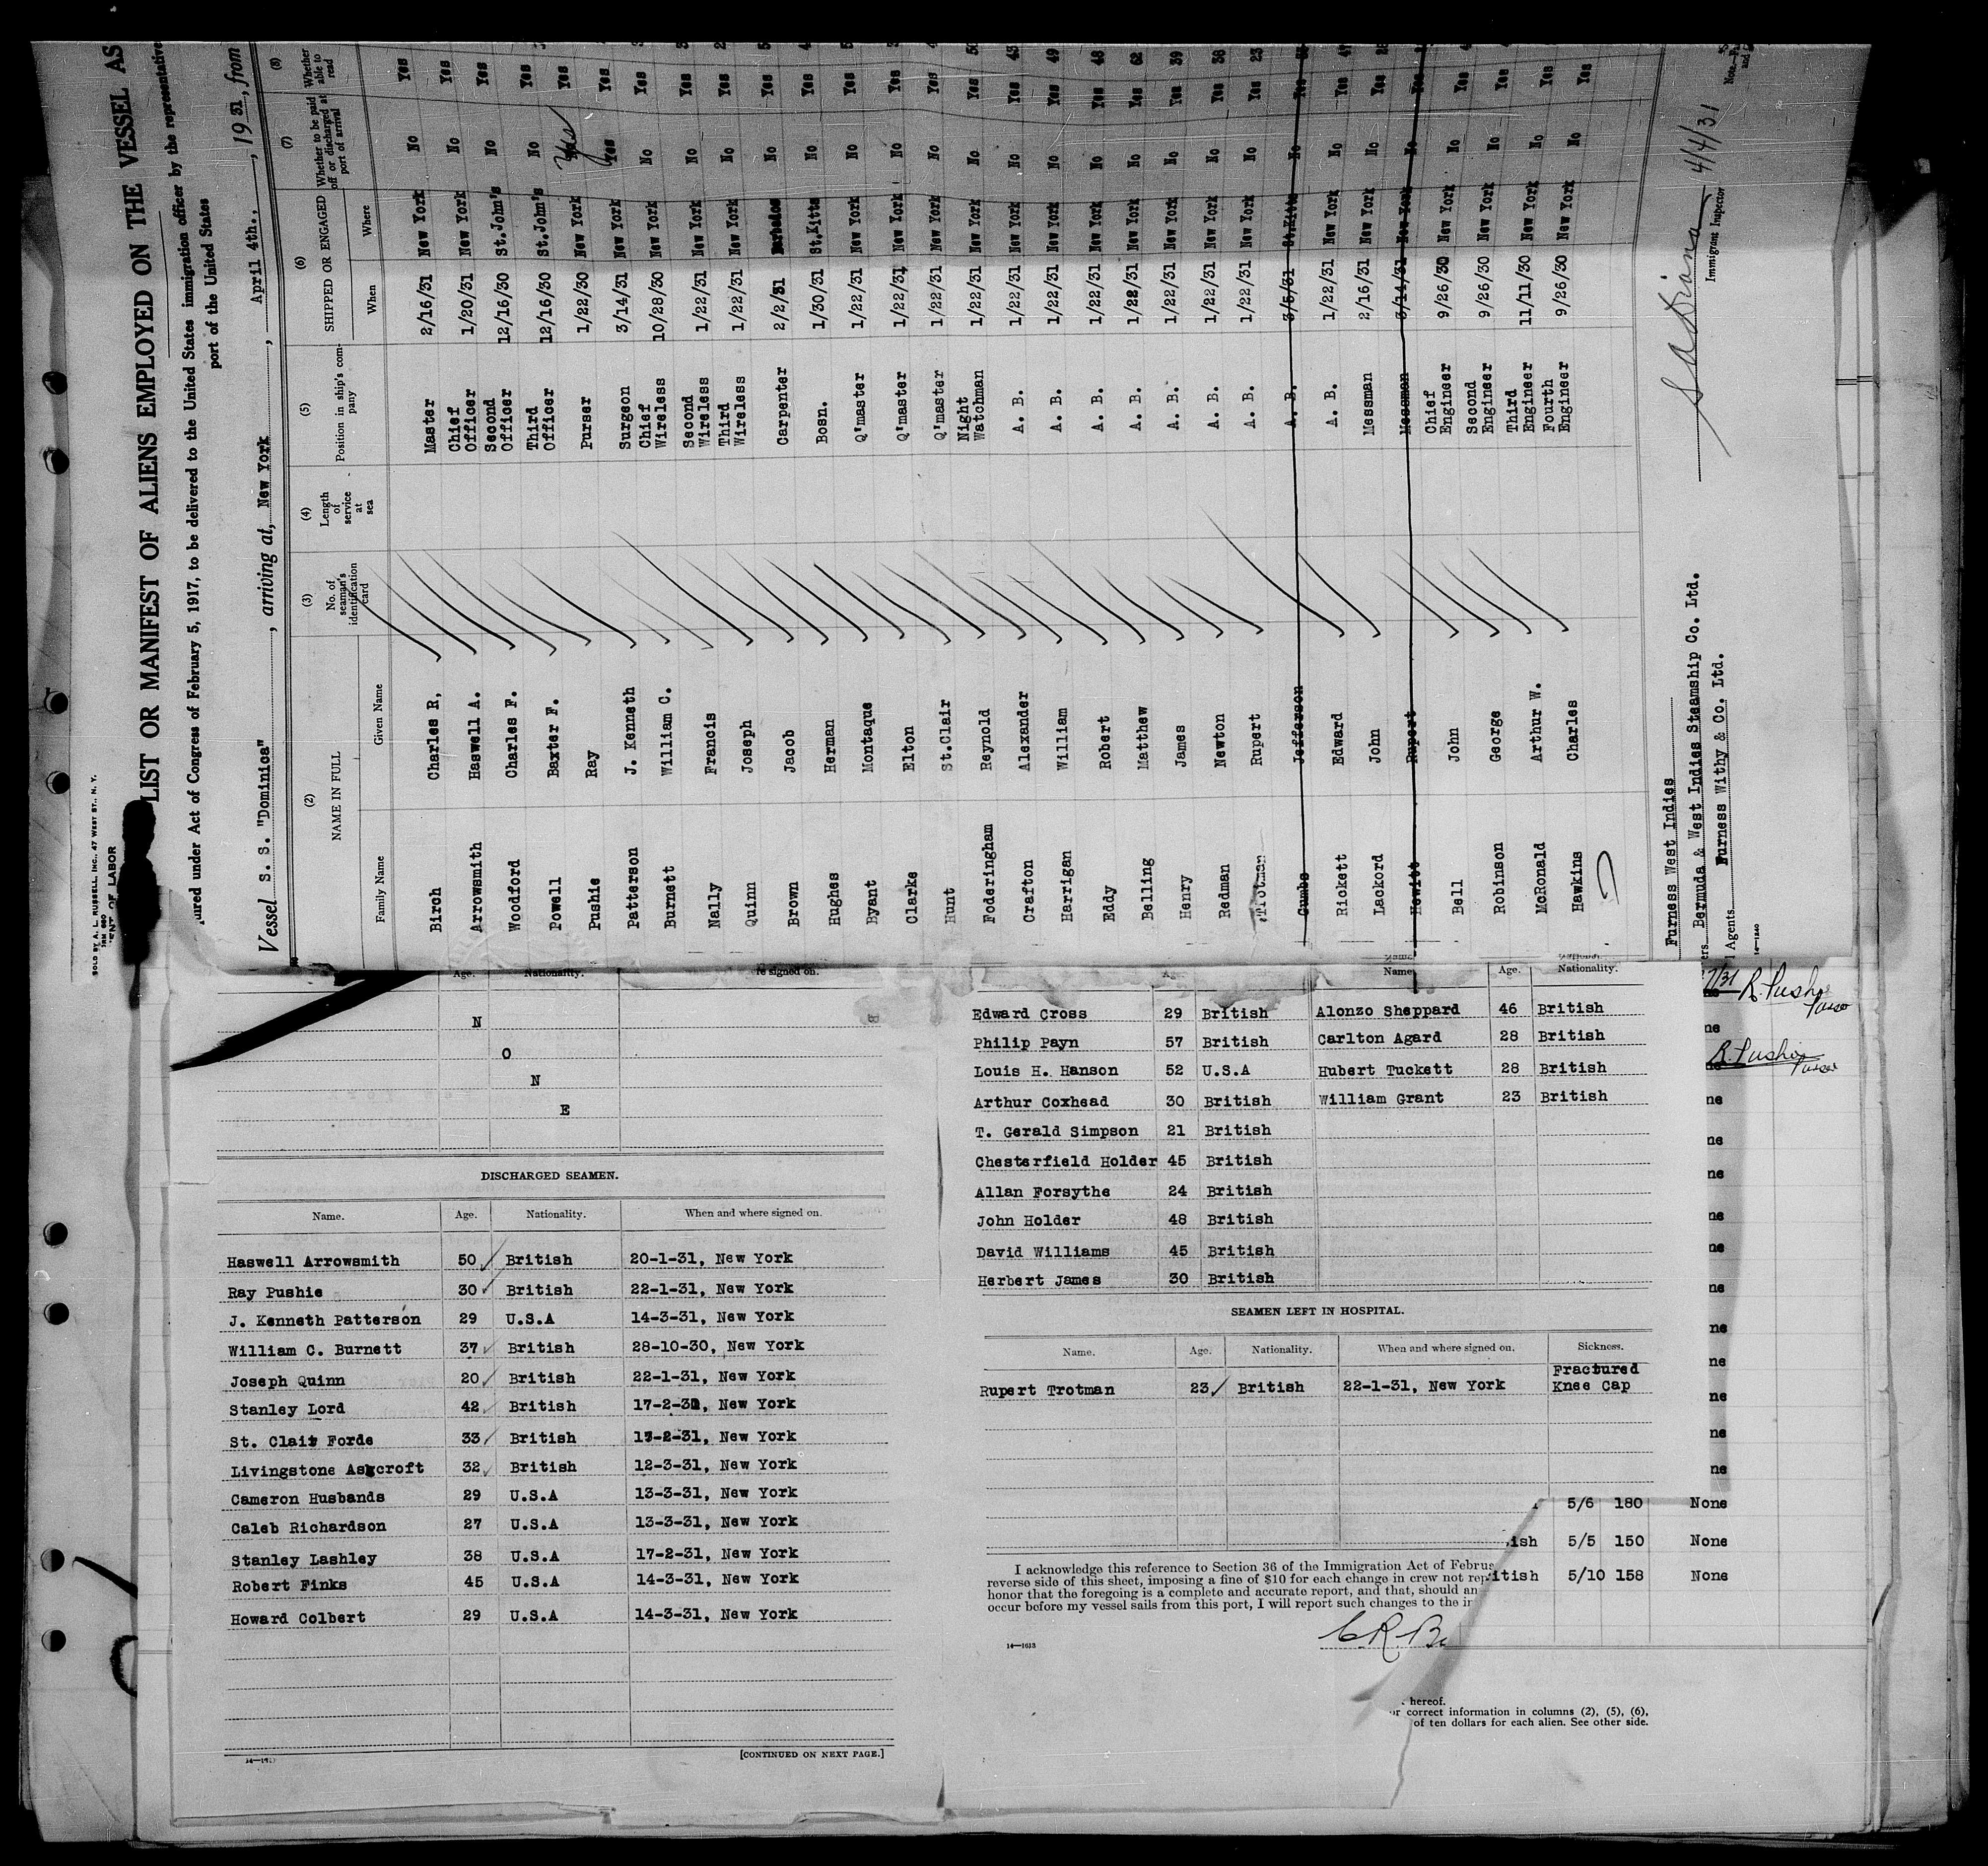 SOLD BY A. L. RUSSELL, INC., 47 WEST ST., N. Y.
LIST OR MANIFEST OF ALIENS EMPLOYED ON THE VESSEL AS
under Act of Congress of February 5, 1917, to be delivered to the United States immigration officer by the representative
port of the United States
Vessel S. S. "Dominica", arriving at, New York, April 4th., 1931, from
(2) (3) (4) (5) (6) (7) (8)
NAME IN FULL No. of seaman's identification card Length of service at sea Position in ship's company SHIPPED OR ENGAGED Whether to be paid off or discharged at port of arrival Whether able to read
Family Name Given Name When Where
Birch Charles R. Master 2/16/31 New York No Yes
Arrowsmith Haswell A. Chief Officer 1/20/31 New York No Yes
Woodford Charles F. Second Officer 12/16/30 St.John's No Yes
Powell Baxter F. Third Officer 12/16/30 St.John's No Yes
Pushie Ray Purser 1/22/30 New York Yes Yes
Patterson J. Kenneth Surgeon 3/14/31 New York Yes Yes
Burnett William C. Chief Wireless 10/28/30 New York No Yes
Nally Francis Second Wireless 1/22/31 New York No Yes
Quinn Joseph Third Wireless 1/22/31 New York No Yes
Brown Jacob Carpenter 2/2/31 Barbados No Yes
Hughes Herman Bosn. 1/30/31 St.Kitts No Yes
Byant Montaque Q'master 1/22/31 New York No Yes
Clarke Elton Q'master 1/22/31 New York No Yes
Hunt St.Clair Q'master 1/22/31 New York No Yes
Foderingham Reynold Night Watchman 1/22/31 New York No Yes
Crafton Alexander A. B. 1/22/31 New York No Yes 43
Harrigan William A. B. 1/22/31 New York No Yes 49
Eddy Robert A. B. 1/22/31 New York No Yes 48
Belling Matthew A. B. 1/22/31 New York No Yes 62
Henry James A. B. 1/22/31 New York No Yes 39
Redman Newton A. B. 1/22/31 New York No Yes 38
Trotman Rupert A. B. 1/22/31 New York No Yes 23
Gumbs Jefferson A. B. 3/5/31 St.Kitts No Yes
Rickett Edward A. B. 1/22/31 New York No Yes
Lackord John Messman 2/16/31 New York No Yes
Hewitt Rupert Messman 3/14/31 New York No Yes
Bell John Chief Engineer 9/26/30 New York No Yes
Robinson George Second Engineer 9/26/30 New York No Yes
McRonald Arthur W. Third Engineer 11/11/30 New York No Yes
Hawkins Charles Fourth Engineer 9/26/30 New York No Yes
Furness West Indies
Bermuda & West Indies Steamship Co. Ltd.
Agents Furness Withy & Co. Ltd.
Immigrant Inspector 4/4/31
14—1240
Age. Nationality. signed on.
N
O
N
E
DISCHARGED SEAMEN.
Name. Age. Nationality. When and where signed on.
Haswell Arrowsmith 50 British 20-1-31, New York
Ray Pushie 30 British 22-1-31, New York
J. Kenneth Patterson 29 U.S.A 14-3-31, New York
William C. Burnett 37 British 28-10-30, New York
Joseph Quinn 20 British 22-1-31, New York
Stanley Lord 42 British 17-2-31, New York
St. Clair Forde 33 British 17-2-31, New York
Livingstone Ashcroft 32 British 12-3-31, New York
Cameron Husbands 29 U.S.A 13-3-31, New York
Caleb Richardson 27 U.S.A 13-3-31, New York
Stanley Lashley 38 U.S.A 17-2-31, New York
Robert Finks 45 U.S.A 14-3-31, New York
Howard Colbert 29 U.S.A 14-3-31, New York
[CONTINUED ON NEXT PAGE.]
Name Age. Nationality.
Edward Cross 29 British Alonzo Sheppard 46 British
Philip Payn 57 British Carlton Agard 28 British
Louis H. Hanson 52 U.S.A Hubert Tuckett 28 British
Arthur Coxhead 30 British William Grant 23 British
T. Gerald Simpson 21 British
Chesterfield Holder 45 British
Allan Forsythe 24 British
John Holder 48 British
David Williams 45 British
Herbert James 30 British
SEAMEN LEFT IN HOSPITAL.
Name. Age. Nationality. When and where signed on. Sickness.
Rupert Trotman 23 British 22-1-31, New York Fractured Knee Cap
I acknowledge this reference to Section 36 of the Immigration Act of
reverse side of this sheet, imposing a fine of $10 for each change in crew not
honor that the foregoing is a complete and accurate report, and that, should
occur before my vessel sails from this port, I will report such changes to the
14—1613
C.R.B
R. Pushie
Purser
R. Pushie
Purser
5/6 180 None
ish 5/5 150 None
itish 5/10 158 None
hereof.
or correct information in columns (2), (5), (6),
of ten dollars for each alien. See other side.